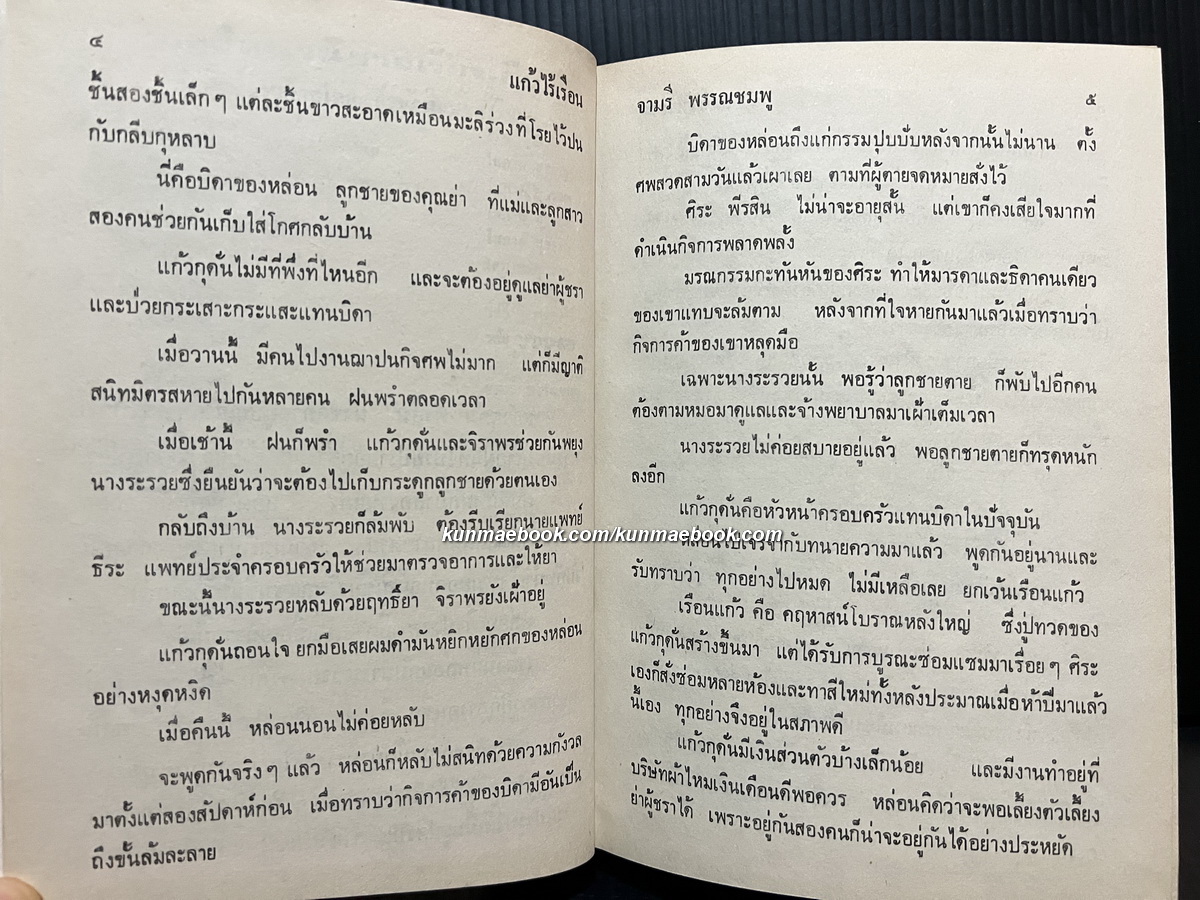 ๔
แก้วไร้เรือน
ชิ้นสองชิ้นเล็กๆ แต่ละชิ้นขาวสะอาดเหมือนมะลิร่วงที่โรยไว้ปน
กับกลีบกุหลาบ
นี่คือบิดาของหล่อน ลูกชายของคุณย่า ที่แม่และลูกสาว
สองคนช่วยกันเก็บใส่โกศกลับบ้าน
แก้วกุดั่นไม่มีที่พึ่งที่ไหนอีก และจะต้องอยู่ดูแลย่าผู้ชรา
และป่วยกระเสาะกระแสะแทนบิดา
เมื่อวานนี้ มีคนไปงานฌาปนกิจศพไม่มาก แต่ก็มีญาติ
สนิทมิตรสหายไปกันหลายคน ฝนพรำตลอดเวลา
เมื่อเช้านี้ ฝนก็พรำ แก้วกุดั่นและจิราพรช่วยกันพยุง
นางระรวยซึ่งยืนยันว่าจะต้องไปเก็บกระดูกลูกชายด้วยตนเอง
กลับถึงบ้าน นางระรวยก็ล้มพับ ต้องรีบเรียกนายแพทย์
ธีระ แพทย์ประจำครอบครัวให้ช่วยมาตรวจอาการและให้ยา
ขณะนี้นางระรวยหลับด้วยฤทธิ์ยา จิราพรยังเฝ้าอยู่
แก้วกุดั่นถอนใจ ยกมือเสยผมดำมันหยิกหยักศกของหล่อน
อย่างหงุดหงิด
เมื่อคืนนี้ หล่อนนอนไม่ค่อยหลับ
จะพูดกันจริงๆ แล้ว หล่อนก็หลับไม่สนิทด้วยความกังวล
มาตั้งแต่สองสัปดาห์ก่อน เมื่อทราบว่ากิจการค้าของบิดามีอันเป็น
ถึงขั้นล้มละลาย
จามรี พรรณชมพู
๕
บิดาของหล่อนถึงแก่กรรมปุบปับหลังจากนั้นไม่นาน ตั้ง
ศพสวดสามวันแล้วเผาเลย ตามที่ผู้ตายจดหมายสั่งไว้
ศิระ พีรสิน ไม่น่าจะอายุสั้น แต่เขาก็คงเสียใจมากที่
ดำเนินกิจการพลาดพลั้ง
มรณกรรมกะทันหันของศิระ ทำให้มารดาและธิดาคนเดียว
ของเขาแทบจะล้มตาม หลังจากที่ใจหายกันมาแล้วเมื่อทราบว่า
กิจการค้าของเขาหลุดมือ
เฉพาะนางระรวยนั้น พอรู้ว่าลูกชายตาย ก็พับไปอีกคน
ต้องตามหมอมาดูแลและจ้างพยาบาลมาเฝ้าเต็มเวลา
นางระรวยไม่ค่อยสบายอยู่แล้ว พอลูกชายตายก็ทรุดหนัก
ลงอีก
แก้วกุดั่นคือหัวหน้าครอบครัวแทนบิดาในปัจจุบัน
หล่อนไปเจรจากับทนายความมาแล้ว พูดกันอยู่นานและ
รับทราบว่า ทุกอย่างไปหมด ไม่มีเหลือเลย ยกเว้นเรือนแก้ว
เรือนแก้ว คือ คฤหาสน์โบราณหลังใหญ่ ซึ่งปู่ทวดของ
แก้วกุดั่นสร้างขึ้นมา แต่ได้รับการบูรณะซ่อมแซมมาเรื่อยๆ ศิระ
เองก็สั่งซ่อมหลายห้องและทาสีใหม่ทั้งหลังประมาณเมื่อห้าปีมาแล้ว
นี้เอง ทุกอย่างจึงอยู่ในสภาพดี
แก้วกุดั่นมีเงินส่วนตัวบ้างเล็กน้อย และมีงานทำอยู่ที่
บริษัทผ้าไหมเงินเดือนดีพอควร หล่อนคิดว่าจะพอเลี้ยงตัวเลี้ยง
ย่าผู้ชราได้ เพราะอยู่กันสองคนก็น่าจะอยู่กันได้อย่างประหยัด
kunmaebook.com/kunmaebook.com